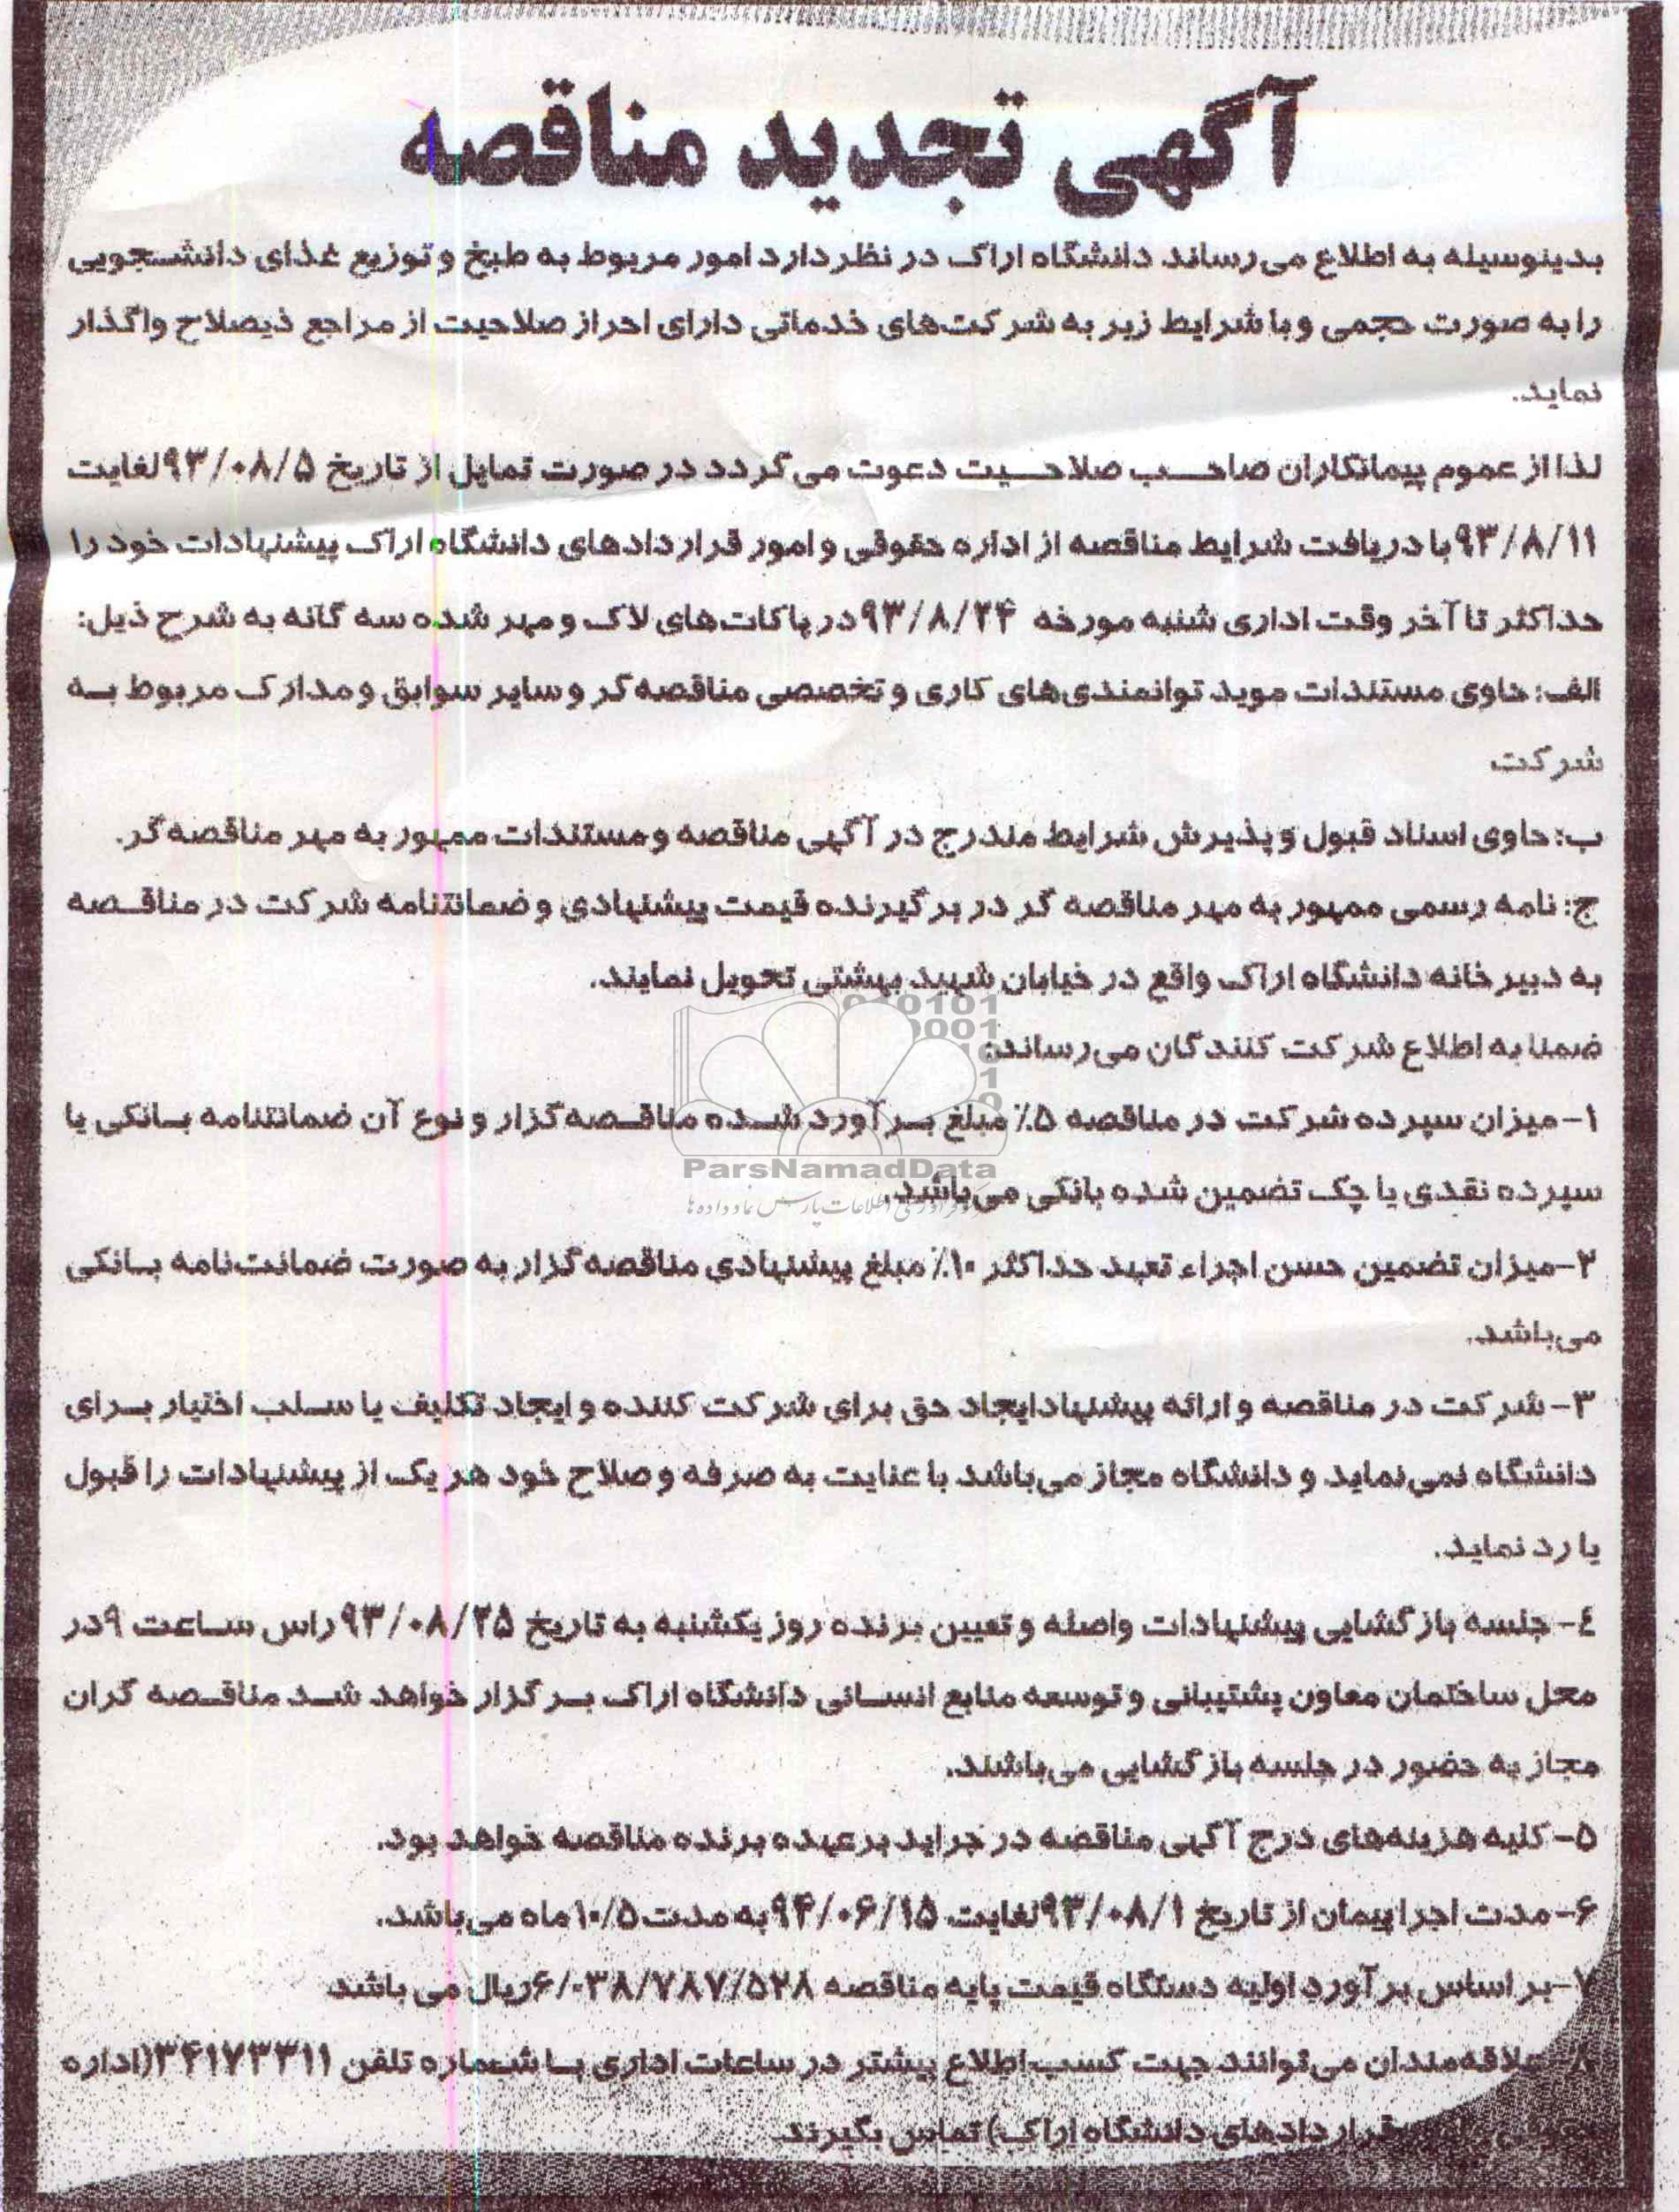 آگهی تجدید مناقصه
بدینوسیله به اطلاع می‌رساند دانشگاه اراک در نظر دارد امور مربوط به طبخ و توزیع غذای دانشجویی
را به صورت حجمی و با شرایط زیر به شرکت‌های خدماتی دارای احراز صلاحیت از مراجع ذیصلاح واگذار
نماید.
لذا از عموم پیمانکاران صاحب صلاحیت دعوت می‌گردد در صورت تمایل از تاریخ ۹۳/۰۸/۵ لغایت
۹۳/۸/۱۱ با دریافت شرایط مناقصه از اداره حقوقی و امور قراردادهای دانشگاه اراک پیشنهادات خود را
حداکثر تا آخر وقت اداری شنبه مورخه ۹۳/۸/۲۴ در پاکات‌های لاک و مهر شده سه گانه به شرح ذیل:
الف: حاوی مستندات موید توانمندی‌های کاری و تخصصی مناقصه‌گر و سایر سوابق و مدارک مربوط به
شرکت
ب: حاوی اسناد قبول و پذیرش شرایط مندرج در آگهی مناقصه و مستندات ممهور به مهر مناقصه‌گر.
ج: نامه رسمی ممهور به مهر مناقصه گر در برگیرنده قیمت پیشنهادی و ضمانتنامه شرکت در مناقصه
به دبیرخانه دانشگاه اراک واقع در خیابان شهید بهشتی تحویل نمایند.
ضمنا به اطلاع شرکت کنندگان می‌رساند:
۱- میزان سپرده شرکت در مناقصه ۵٪ مبلغ برآورد شده مناقصه‌گزار و نوع آن ضمانتنامه بانکی یا
سپرده نقدی یا چک تضمین شده بانکی می‌باشد.
ParsNamadData
۲- میزان تضمین حسن اجراء تعهد حداکثر ۱۰٪ مبلغ پیشنهادی مناقصه‌گزار به صورت ضمانت‌نامه بانکی
می‌باشد.
۳- شرکت در مناقصه و ارائه پیشنهاد ایجاد حق برای شرکت کننده و ایجاد تکلیف یا سلب اختیار برای
دانشگاه نمی‌نماید و دانشگاه مجاز می‌باشد با عنایت به صرفه و صلاح خود هر یک از پیشنهادات را قبول
یا رد نماید.
٤- جلسه بازگشایی پیشنهادات واصله و تعیین برنده روز یکشنبه به تاریخ ۹۳/۰۸/۲۵ راس ساعت ۹ در
محل ساختمان معاون پشتیبانی و توسعه منابع انسانی دانشگاه اراک برگزار خواهد شد مناقصه گران
مجاز به حضور در جلسه بازگشایی می‌باشند.
۵- کلیه هزینه‌های درج آگهی مناقصه در جراید برعهده برنده مناقصه خواهد بود.
۶- مدت اجرا پیمان از تاریخ ۹۳/۰۸/۱ لغایت ۹۴/۰۶/۱۵ به مدت ۱۰/۵ ماه می‌باشد.
۷- بر اساس برآورد اولیه دستگاه قیمت پایه مناقصه ۶/۰۳۸/۷۸۷/۵۲۸ ریال می باشد
۸- علاقه‌مندان می‌توانند جهت کسب اطلاع بیشتر در ساعات اداری با شماره تلفن ۳۴۱۷۳۳۱۱ (اداره
قراردادهای دانشگاه اراک) تماس بگیرند.